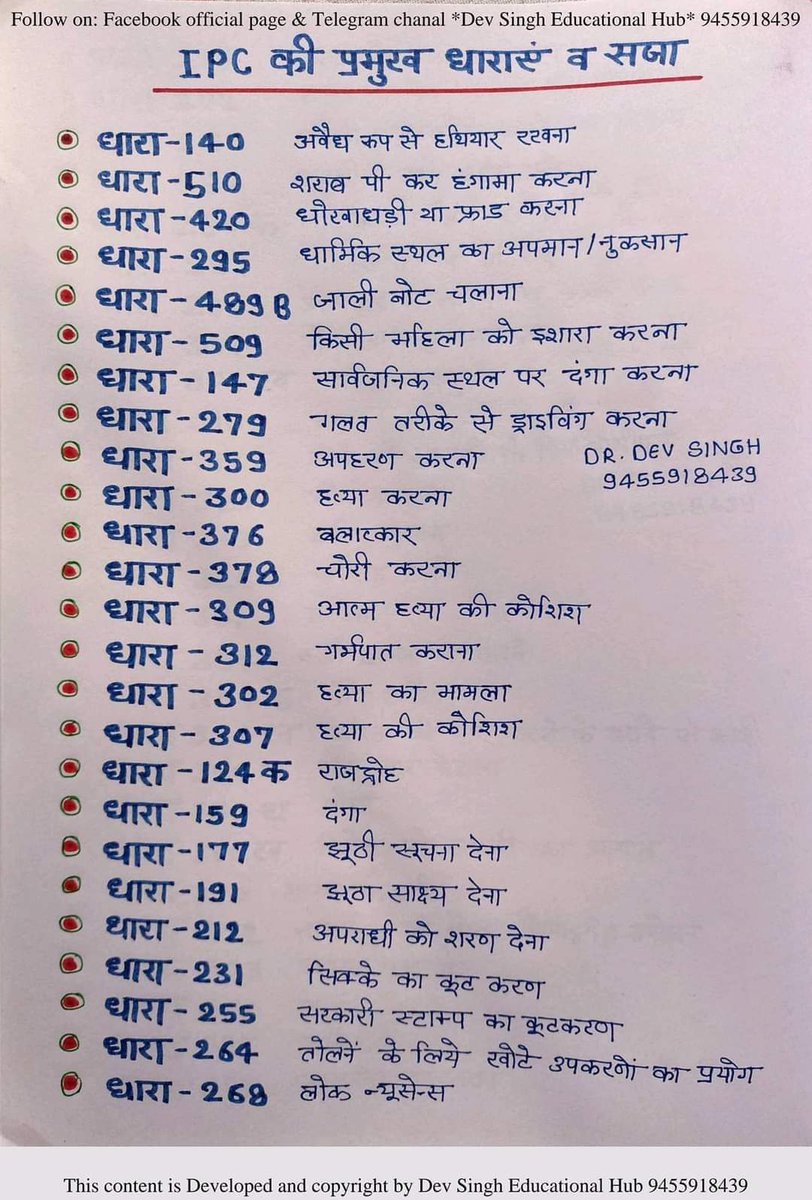 Follow on: Facebook official page & Telegram chanal *Dev Singh Educational Hub* 9455918439
IPC की प्रमुख धाराएं व सजा
धारा-140 अवैध रुप से हथियार रखना
धारा-510 शराब पी कर हंगामा करना
धारा-420 धोखाधड़ी या फ्राड करना
धारा-295 धार्मिक स्थल का अपमान/नुकसान
धारा-489B जाली नोट चलाना
धारा-509 किसी महिला को इशारा करना
धारा-147 सार्वजनिक स्थल पर दंगा करना
धारा-279 गलत तरीके से ड्राइविंग करना
धारा-359 अपहरण करना DR. DEV SINGH
9455918439
धारा-300 हत्या करना
धारा-376 बलात्कार
धारा-378 चोरी करना
धारा-309 आत्म हत्या की कोशिश
धारा-312 गर्मपात कराना
धारा-302 हत्या का मामला
धारा-307 हत्या की कोशिश
धारा-124क राजद्रोह
धारा-159 दंगा
धारा-177 झूठी सूचना देना
धारा-191 झूठा साक्ष्य देना
धारा-212 अपराधी को शरण देना
धारा-231 सिक्के का कूट करण
धारा-255 सरकारी स्टाम्प का कूटकरण
धारा-264 तोलनें के लिये खोटे उपकरणों का प्रयोग
धारा-268 लोक न्यूसेन्स
This content is Developed and copyright by Dev Singh Educational Hub 9455918439